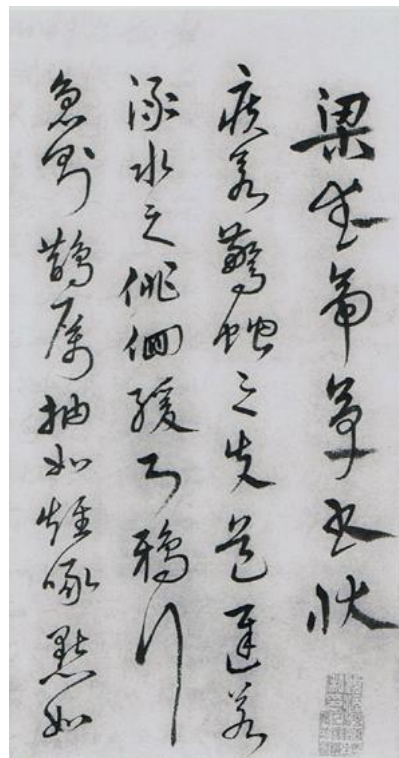 梁武帝草書狀
疾若驚蛇之失道遲若
淥水之徘徊緩則鴉行
急則鵲厲抽如雉啄點如